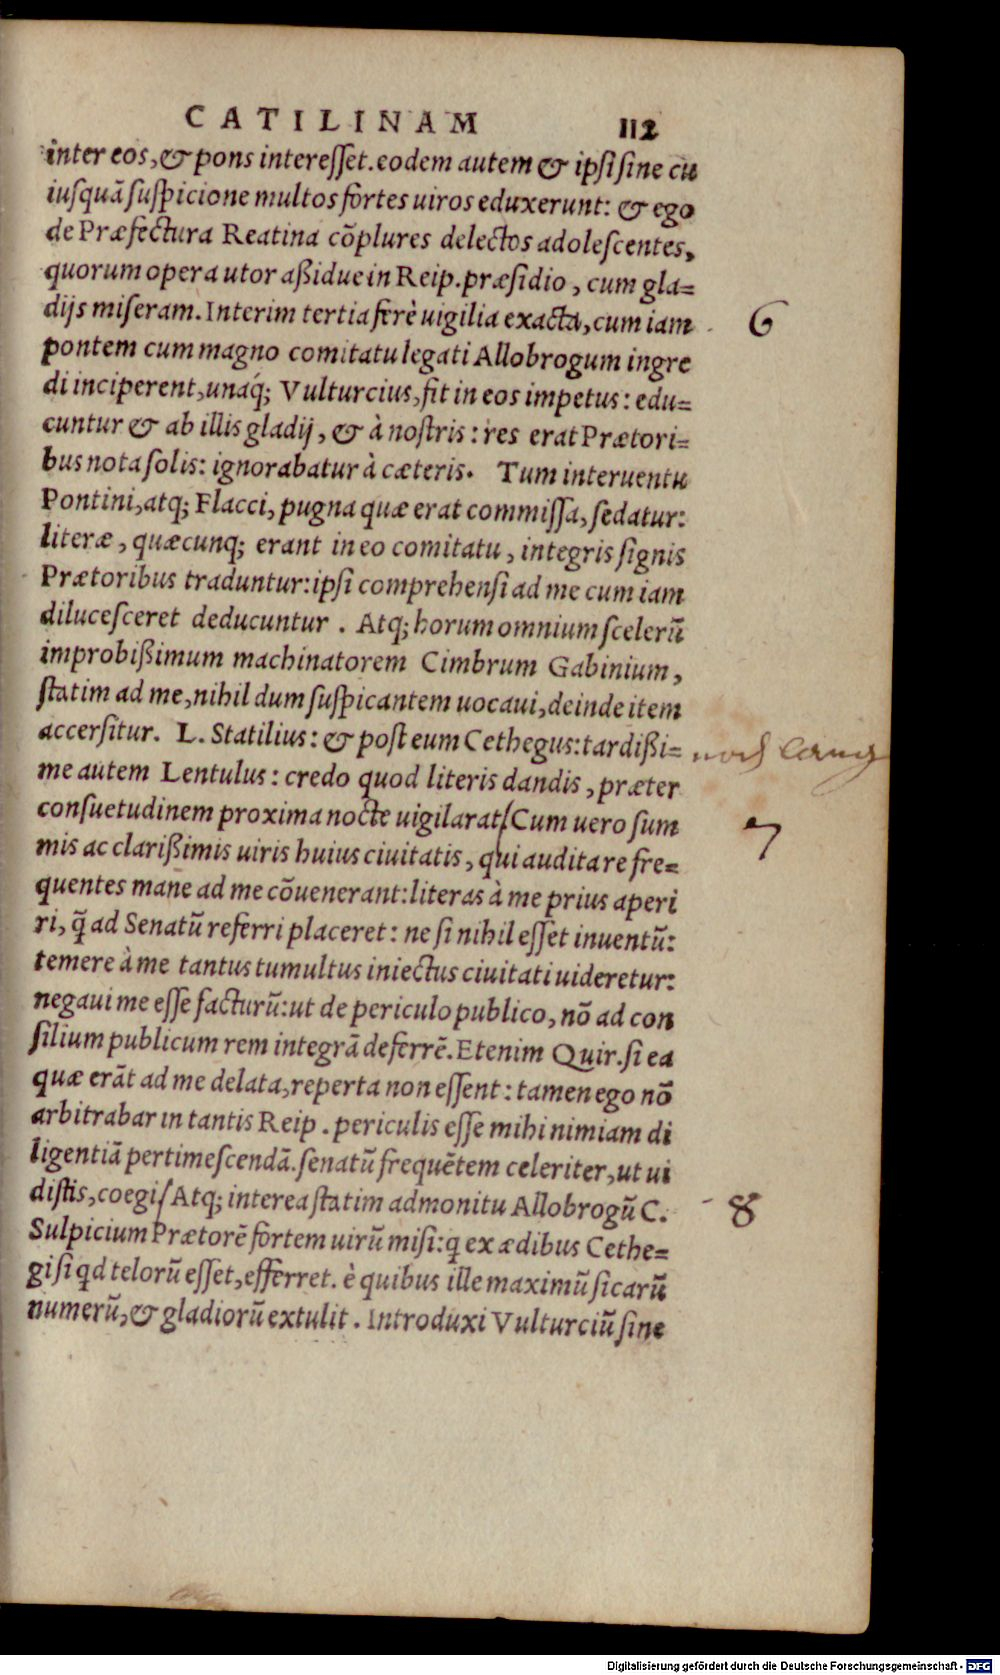 CATILINAM 112
inter eos, & pons interesset. eodem autem & ipsi sine cu
iusquã suspicione multos fortes uiros eduxerunt: & ego
de Præfectura Reatina cõplures delectos adolescentes,
quorum opera utor aßidue in Reip. præsidio, cum gla=
dijs miseram. Interim tertia ferè uigilia exacta, cum iam 6
pontem cum magno comitatu legati Allobrogum ingre
di inciperent, unaq́; Vulturcius, fit in eos impetus: edu=
cuntur & ab illis gladij, & à nostris: res erat Prætori=
bus nota solis: ignorabatur à cæteris. Tum interuentu
Pontini, atq; Flacci, pugna quæ erat commissa, sedatur:
literæ, quæcunq; erant in eo comitatu, integris signis
Prætoribus traduntur: ipsi comprehensi ad me cum iam
dilucesceret deducuntur. Atq; horum omnium scelerũ
improbißimum machinatorem Cimbrum Gabinium,
statim ad me, nihil dum suspicantem uocaui, deinde item
accersitur. L. Statilius: & post eum Cethegus: tardißi= noch lang
me autem Lentulus: credo quod literis dandis, præter
consuetudinem proxima nocte uigilarat/ Cum uero sum 7
mis ac clarißimis uiris huius ciuitatis, qui audita re fre=
quentes mane ad me cõuenerant: literas à me prius aperi
ri, q̃ ad Senatũ referri placeret: ne si nihil esset inuentũ:
temere à me tantus tumultus iniectus ciuitati uideretur:
negaui me esse facturũ: ut de periculo publico, nõ ad con
silium publicum rem integrã deferrẽ. Etenim Quir. si ea
quæ erãt ad me delata, reperta non essent: tamen ego nõ
arbitrabar in tantis Reip. periculis esse mihi nimiam di
ligentiã pertimescendã. senatũ frequẽtem celeriter, ut ui
distis, coegi/ Atq; interea statim admonitu Allobrogũ C. 8
Sulpicium Prætorẽ fortem uirũ misi: q ex ædibus Cethe=
gi si qd telorũ esset, efferret. è quibus ille maximũ sicarũ
numerũ, & gladiorũ extulit. Introduxi Vulturciũ sine
Digitalisierung gefördert durch die Deutsche Forschungsgemeinschaft - DFG